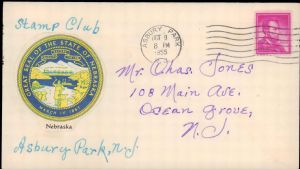 Stamp Club
ASBURY PARK
8 PM
1955
GREAT SEAL OF THE STATE OF NEBRASKA
MARCH 1ST 1867
Nebraska
Mr. Chas. Jones
108 Main Ave.
Ocean Grove,
N. J.
Asbury Park, N.J.